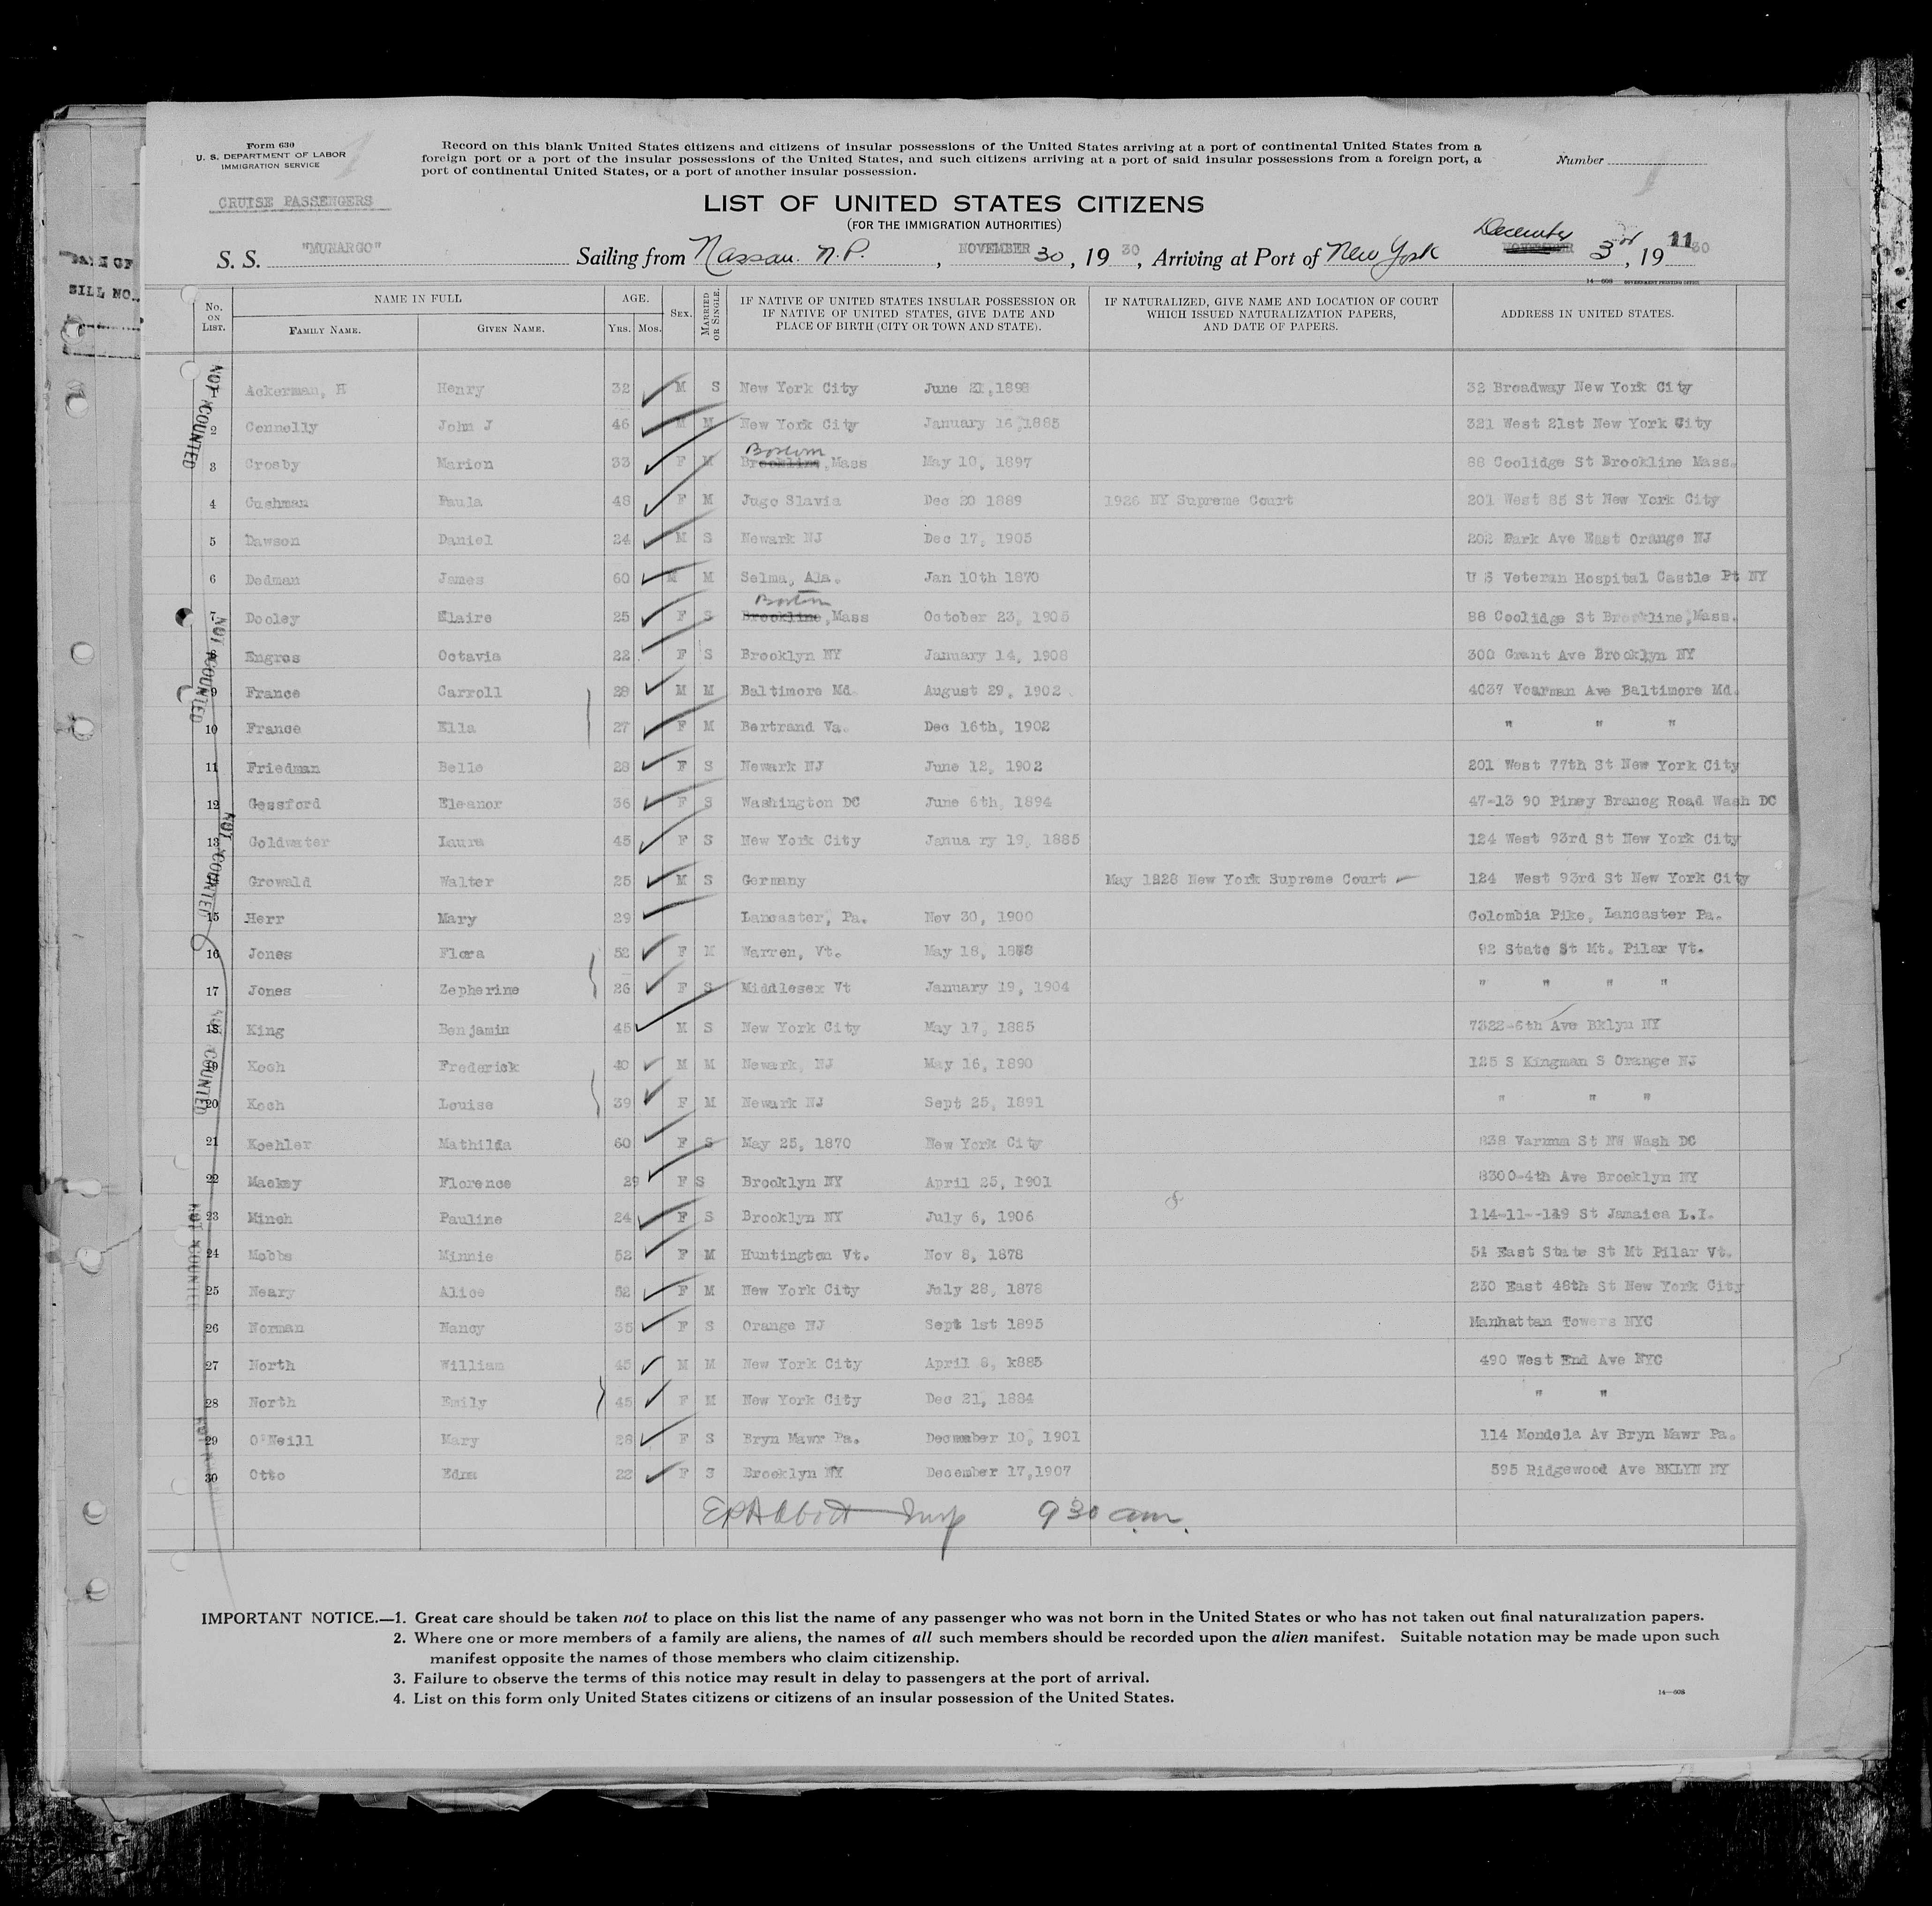 Form 630
U. S. DEPARTMENT OF LABOR
IMMIGRATION SERVICE
Record on this blank United States citizens and citizens of insular possessions of the United States arriving at a port of continental United States from a
foreign port or a port of the insular possessions of the United States, and such citizens arriving at a port of said insular possessions from a foreign port, a
port of continental United States, or a port of another insular possession.
Number
CRUISE PASSENGERS
LIST OF UNITED STATES CITIZENS
(FOR THE IMMIGRATION AUTHORITIES)
S. S. "MUNARGO" Sailing from Nassau. N.P., NOVEMBER 30, 19 30, Arriving at Port of New York December NOVEMBER 3rd, 19 30
11
14—608 GOVERNMENT PRINTING OFFICE
BILL NO.
No. ON LIST. NAME IN FULL AGE. SEX. MARRIED OR SINGLE. IF NATIVE OF UNITED STATES INSULAR POSSESSION OR IF NATIVE OF UNITED STATES, GIVE DATE AND PLACE OF BIRTH (CITY OR TOWN AND STATE). IF NATURALIZED, GIVE NAME AND LOCATION OF COURT WHICH ISSUED NATURALIZATION PAPERS, AND DATE OF PAPERS. ADDRESS IN UNITED STATES.
FAMILY NAME. GIVEN NAME. YRS. MOS.
NOT COUNTED
Ackerman, H Henry 32 M S New York City June 21,1898 32 Broadway New York City
2 Connelly John J 46 M M New York City January 16,1885 321 West 21st New York City
Boston
3 Crosby Marion 33 F M Brookline,Mass May 10, 1897 88 Coolidge St Brookline Mass.
4 Cushman Paula 48 F M Jugo Slavia Dec 20 1889 1926 NY Supreme Court 201 West 85 St New York City
5 Dawson Daniel 24 M S Newark NJ Dec 17, 1905 202 Park Ave East Orange NJ
6 Dedman James 60 M M Selma, Ala. Jan 10th 1870 U S Veteran Hospital Castle Pt NY
Boston
7 Dooley Elaire 25 F S Brookline,Mass October 23, 1905 88 Coolidge St Brookline,Mass.
NOT COUNTED
8 Engros Octavia 22 F S Brooklyn NY January 14, 1908 300 Grant Ave Brooklyn NY
9 France Carroll 28 M M Baltimore Md. August 29, 1902 4037 Voarman Ave Baltimore Md.
10 France Ella 27 F M Bertrand Va. Dec 16th, 1902 " " "
11 Friedman Belle 28 F S Newark NJ June 12, 1902 201 West 77th St New York City
12 Gessford Eleanor 36 F S Washington DC June 6th, 1894 47-13 90 Piney Brancg Road Wash DC
NOT COUNTED
13 Goldwater Laura 45 F S New York City Janua ry 19, 1885 124 West 93rd St New York City
Growald Walter 25 M S Germany May 1228 New York Supreme Court 124 West 93rd St New York City
15 Herr Mary 29 Lancaster, Pa. Nov 30, 1900 Colombia Pike, Lancaster Pa.
16 Jones Flora 52 F M Warren, Vt. May 18, 1878 92 State St Mt. Pilar Vt.
17 Jones Zepherine 26 F S Middlesex Vt January 19, 1904 " " " "
NOT COUNTED
18 King Benjamin 45 M S New York City May 17, 1885 7322-6th Ave Bklyn NY
19 Koch Frederick 40 M M Newark, NJ May 16, 1890 125 S Kingman S Orange NJ
20 Koch Louise 39 F M Newark NJ Sept 25, 1891 " " "
21 Koehler Mathilda 60 F S May 25, 1870 New York City 838 Varnum St NW Wash DC
22 Mackey Florence 29 F S Brooklyn NY April 25, 1901 8300-4th Ave Brooklyn NY
NOT COUNTED
23 Minch Pauline 24 F S Brooklyn NY July 6, 1906 114-11--149 St Jamaica L.I.
24 Mobbs Minnie 52 F M Huntington Vt. Nov 8, 1878 51 East State St Mt Pilar Vt.
25 Neary Alice 52 F M New York City July 28, 1878 230 East 48th St New York City
26 Norman Nancy 35 F S Orange NJ Sept 1st 1895 Manhattan Towers NYC
27 North William 45 M M New York City April 8, k885 490 West End Ave NYC
28 North Emily 45 F M New York City Dec 21, 1884 " "
29 O'Neill Mary 28 F S Bryn Mawr Pa. December 10, 1901 114 Mondela Av Bryn Mawr Pa.
30 Otto Edna 22 F S Brooklyn NY December 17,1907 595 Ridgewood Ave BKLYN NY
EP Abbott Insp 9 30 am.
IMPORTANT NOTICE.—1. Great care should be taken not to place on this list the name of any passenger who was not born in the United States or who has not taken out final naturalization papers.
2. Where one or more members of a family are aliens, the names of all such members should be recorded upon the alien manifest. Suitable notation may be made upon such
manifest opposite the names of those members who claim citizenship.
3. Failure to observe the terms of this notice may result in delay to passengers at the port of arrival.
4. List on this form only United States citizens or citizens of an insular possession of the United States.
14—608